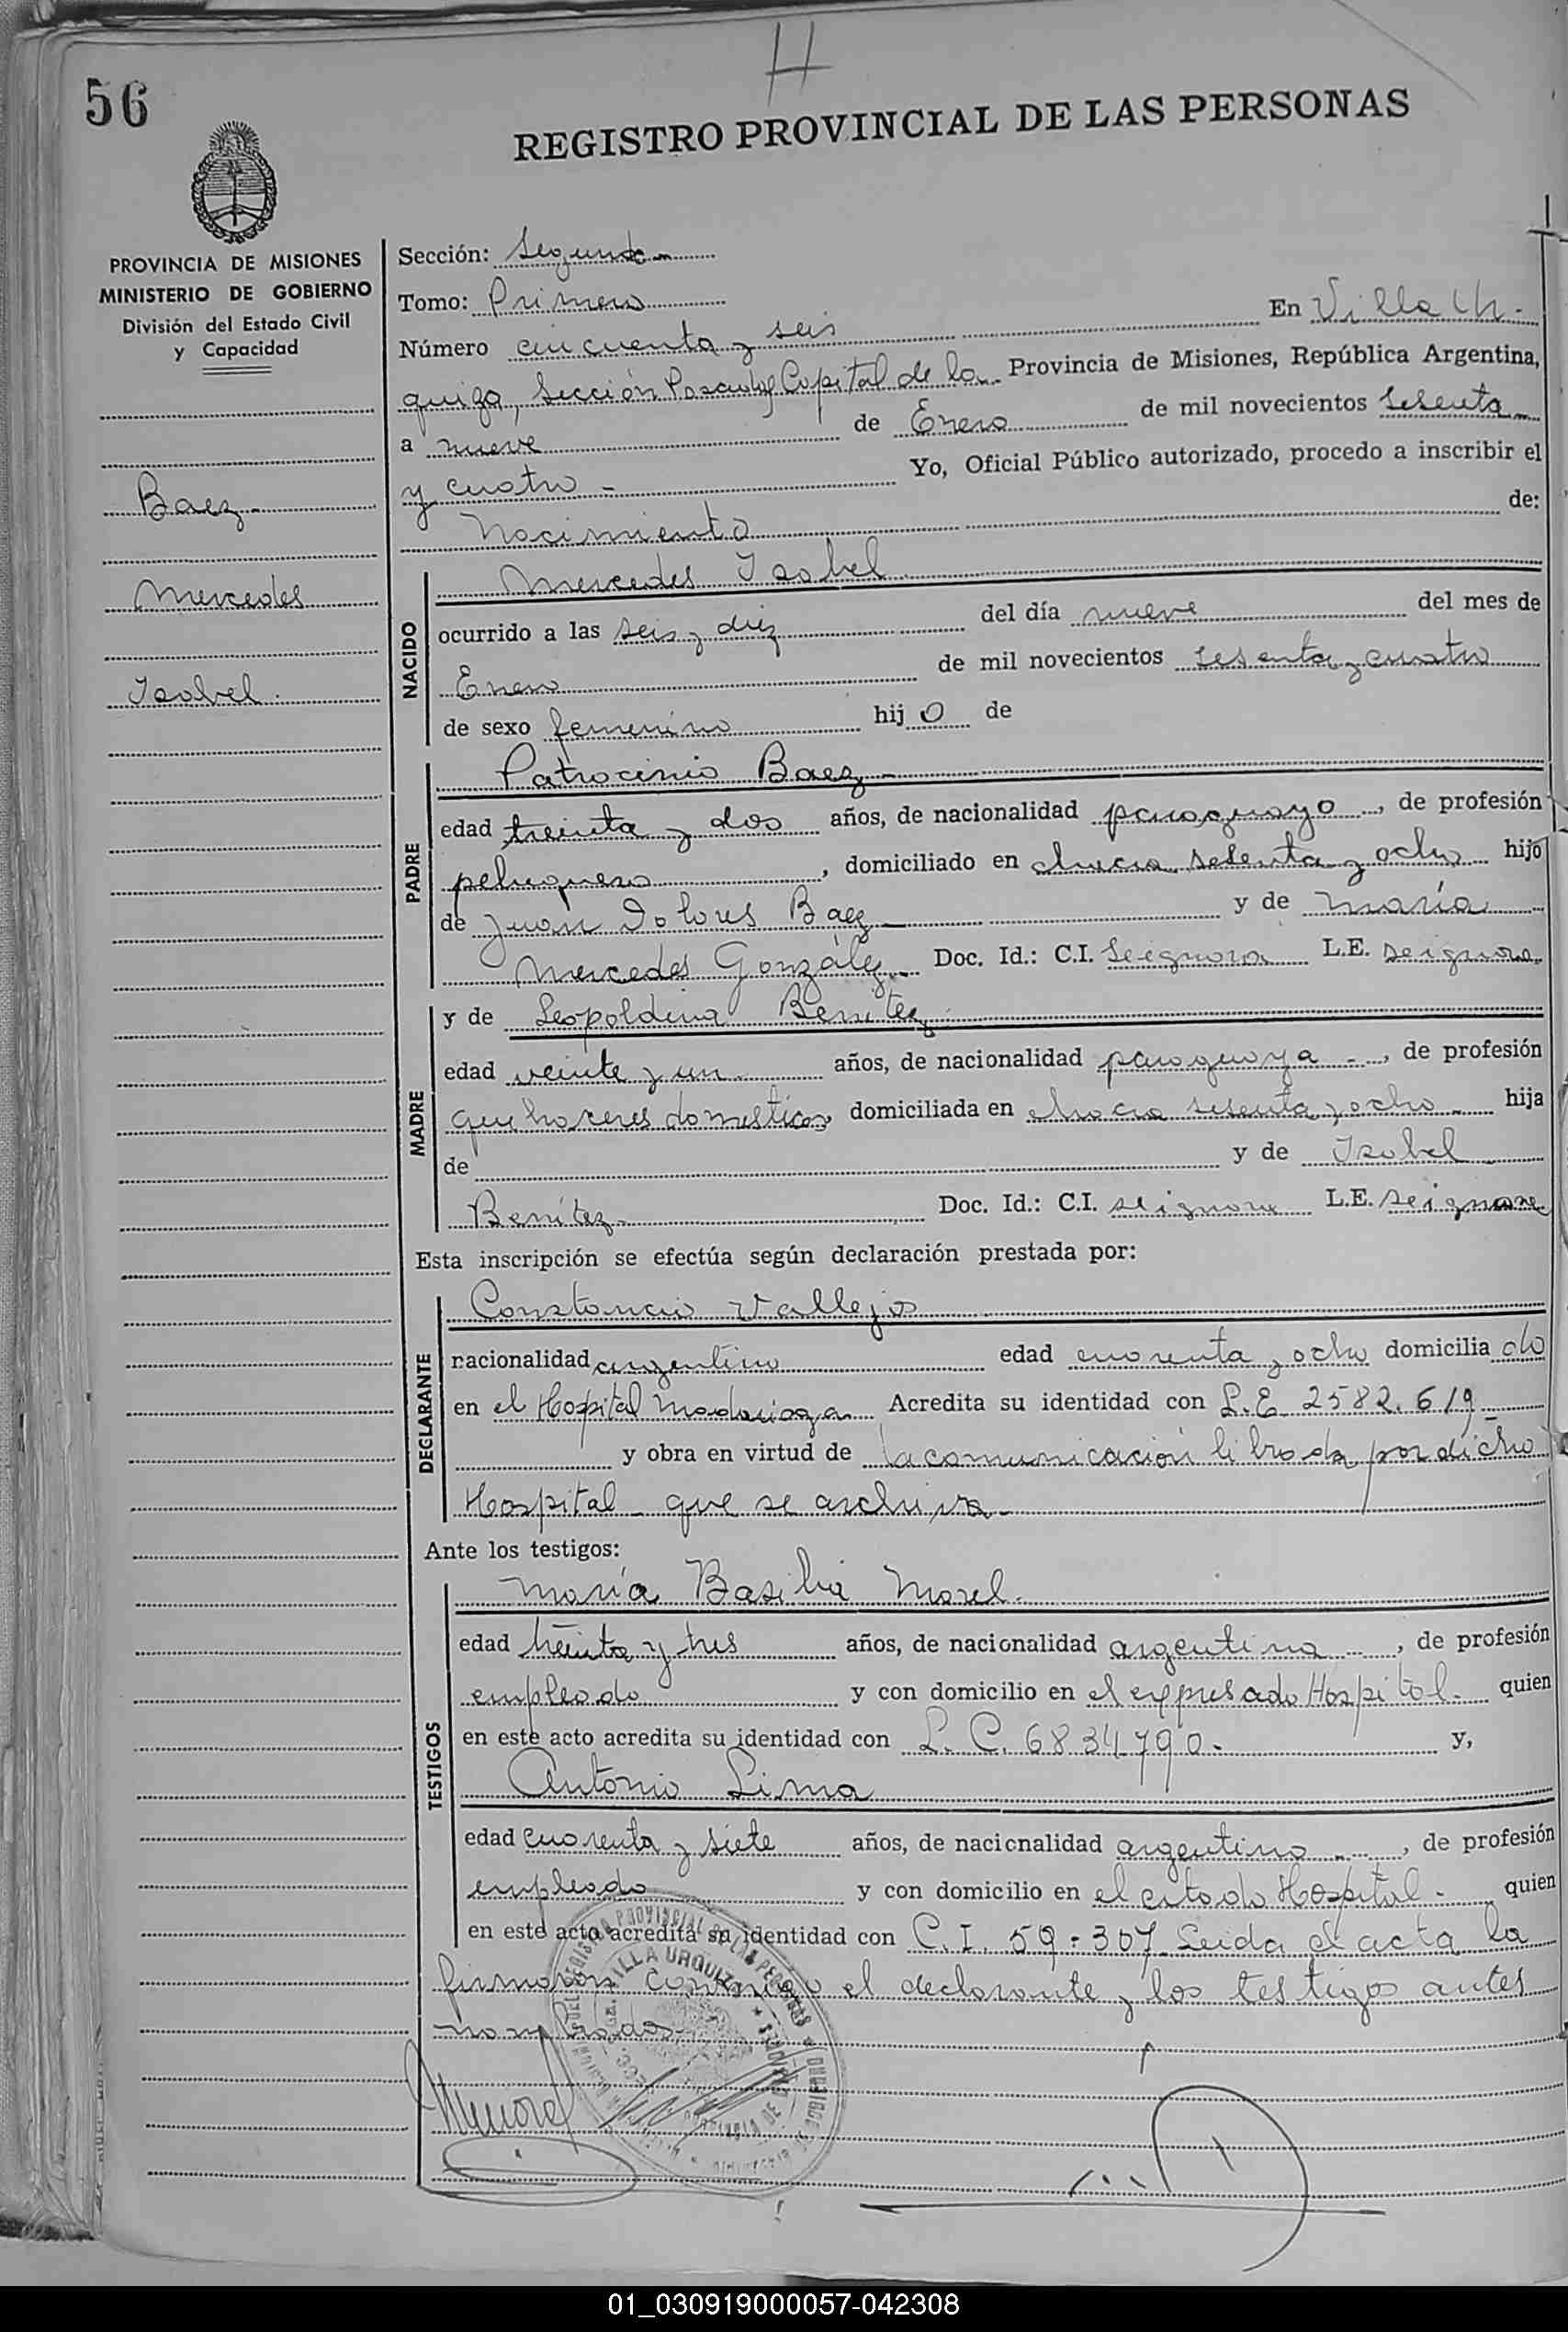 H
56
REGISTRO PROVINCIAL DE LAS PERSONAS
PROVINCIA DE MISIONES
MINISTERIO DE GOBIERNO
División del Estado Civil
y Capacidad
Baez
Mercedes
Isabel.
Sección: Segunda
Tomo: Primero
Número cincuenta y seis En Villa Ur-
quiza, Sección Posadas Capital de la Provincia de Misiones, República Argentina,
a nueve de Enero de mil novecientos sesenta
y cuatro - Yo, Oficial Público autorizado, procedo a inscribir el
Nacimiento de:
NACIDO
Mercedes Isabel
ocurrido a las seis y diez del día nueve del mes de
Enero de mil novecientos sesenta y cuatro
de sexo femenino hij o de
PADRE
Patrocinio Baez
edad treinta y dos años, de nacionalidad paraguayo, de profesión
peluquero, domiciliado en chacra sesenta y ocho hijo
de Juan Dolores Baez y de María
Mercedes González Doc. Id.: C.I. Seignora L.E. seignora
MADRE
y de Leopoldina Benitez
edad veinte y un años, de nacionalidad paraguaya, de profesión
quehaceres domesticos domiciliada en chacra sesenta y ocho hija
de y de Isabel
Benítez Doc. Id.: C.I. seignora L.E. seignora
Esta inscripción se efectúa según declaración prestada por:
DECLARANTE
Constancio Vallejos
nacionalidad argentino edad cuarenta y ocho domicilia do
en el Hospital Madariaga Acredita su identidad con L.E. 2582.619
y obra en virtud de la comunicación librada por dicho
Hospital que se archiva
Ante los testigos:
TESTIGOS
María Basilia Morel.
edad treinta y tres años, de nacionalidad argentina, de profesión
empleada y con domicilio en el expresado Hospital. quien
en este acto acredita su identidad con L. C. 6834790. y,
Antonio Lima
edad cuarenta y siete años, de nacionalidad argentino, de profesión
empleado y con domicilio en el citado Hospital. quien
en este acto acredita su identidad con C.I. 59.307 Leida el acta la
firmaron conmigo el declarante y los testigos antes
nombrados.
VILLA URQUIZA
01_030919000057-042308